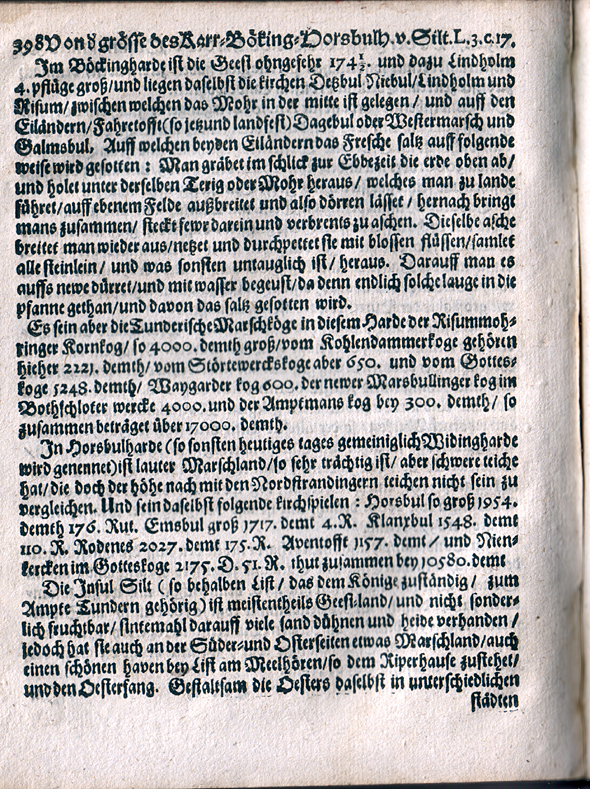 398 Von d grösse des Karr-Böking-Horsbulh. v. Silt. L.3.c.17.
Im Böckingharde ist die Geest ohngefehr 174½. und dazu Lindholm
4. pflüge groß/und liegen daselbst die kirchen Detzbul Niebul/Lindholm und
Risum/zwischen welchen das Mohr in der mitte ist gelegen / und auff den
Eiländern/Fahretofft(so jetzund landfest)Dagebul oder Westermarsch und
Galmsbul. Auff welchen beyden Eiländern das Fresche saltz auff folgende
weise wird gesotten : Man gräbet im schlick zur Ebbezeit die erde oben ab/
und holet unter derselben Terig oder Mohr heraus/ welches man zu lande
führet/auff ebenem Felde außbreitet und also dörren lässet / hernach bringt
mans zusammen/ steckt fewr darein und verbrents zu aschen. Dieselbe asche
breitet man wieder aus/netzet und durchpettet sie mit blossen flüssen/samlet
alle steinlein/ und was sonsten untauglich ist/ heraus. Darauff man es
auffs newe dürret/und mit wasser begeust/da denn endlich solche lauge in die
pfanne gethan/und davon das saltz gesotten wird.
Es sein aber die Tunderische Marschköge in diesem Harde der Risummoh-
ringer Kornkog/ so 4000. demth groß/vom Kohlendammerkoge gehören
hieher 2221. demth/ vom Störtewerckskoge aber 650. und vom Gottes-
koge 5248. demth/ Waygarder kog 600. der newer Marsbullinger kog im
Bothschloter wercke 4000. und der Amptmans kog bey 300. demth/ so
zusammen beträget über 17000. demth.
In Horsbulharde (so sonsten heutiges tages gemeiniglich Widingharde
wird genennet)ist lauter Marschland/so sehr trächtig ist/ aber schwere teiche
hat/die doch der höhe nach mit den Nordstrandingern teichen nicht sein zu
vergleichen. Und sein daselbst folgende kirchspielen : Horsbul so groß 1954.
demth 176. Rut. Emsbul groß 1717. demt 4.R. Klanxbul 1548. demt
110. R. Rodenes 2027. demt 175.R. Aventofft 1157. demt / und Nien-
kercken im Gotteskoge 2175. D. 51. R. thut zusammen bey 10580. demt
Die Insul Silt ( so behalben List/ das dem Könige zuständig/ zum
Ampte Tundern gehörig) ist meistentheils Geest-land/ und nicht sonder-
lich fruchtbar/ sintemahl darauff viele sand dühnen und heide verhanden /
jedoch hat sie auch an der Süder-und Osterseiten etwas Marschland/auch
einen schönen haven bey List am Meelhören/so dem Riperhause zustehet/
und den Oesterfang. Gestaltsam die Oesters daselbst in unterschiedlichen
städten